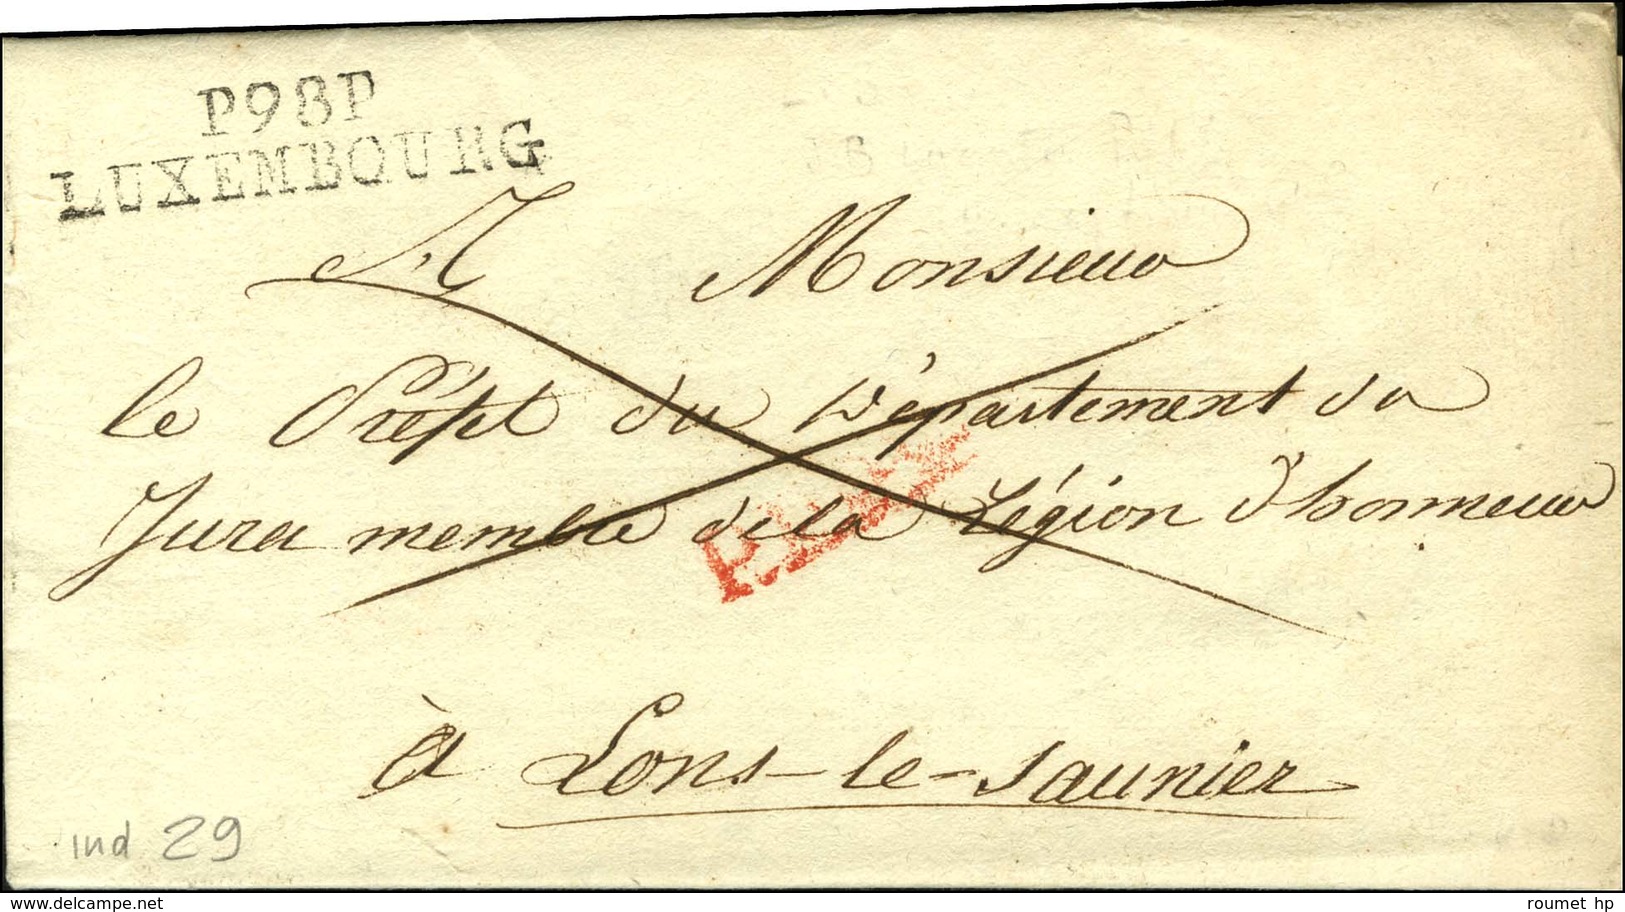 P98P
LUXEMBOURG
A Monsieur
le Préfet du Département du
Jura membre de la Légion d'honneur
à Lons-le-Saunier
ind 29
delcampe.net
roumet hp